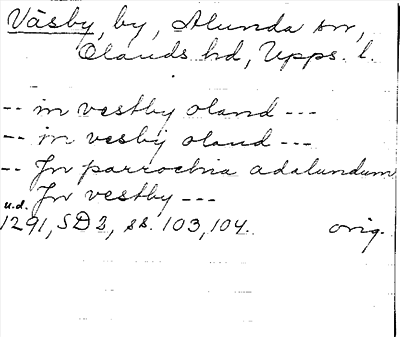 Väsby, by, Alunda sn,
Olands hd, Upps. l.
-- in vestby oland ---
-- in vesby oland ---
-- Jn parrochia adalundum
Jn vestby ---
u.d.
1291, SD2, ss. 103, 104. orig.